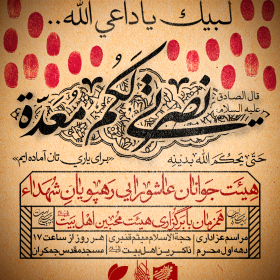 لبيك ياداعي الله..
قال الصادق
عليه السلام
نصرتي لكم معدة
حتى يحكم الله بدينه
«برای یاری تان آماده ایم»
هیئت جوانان عاشورایی رهپویان شهداء
همزمان با برگزاری هیئت محبین اهل بیت
مراسم عزاداری حجة الاسلام میثم قنبری هر روز از ساعت ۱۷
دهه اول محرم ذاکرین اهل بیت مسجد مقدس جمکران